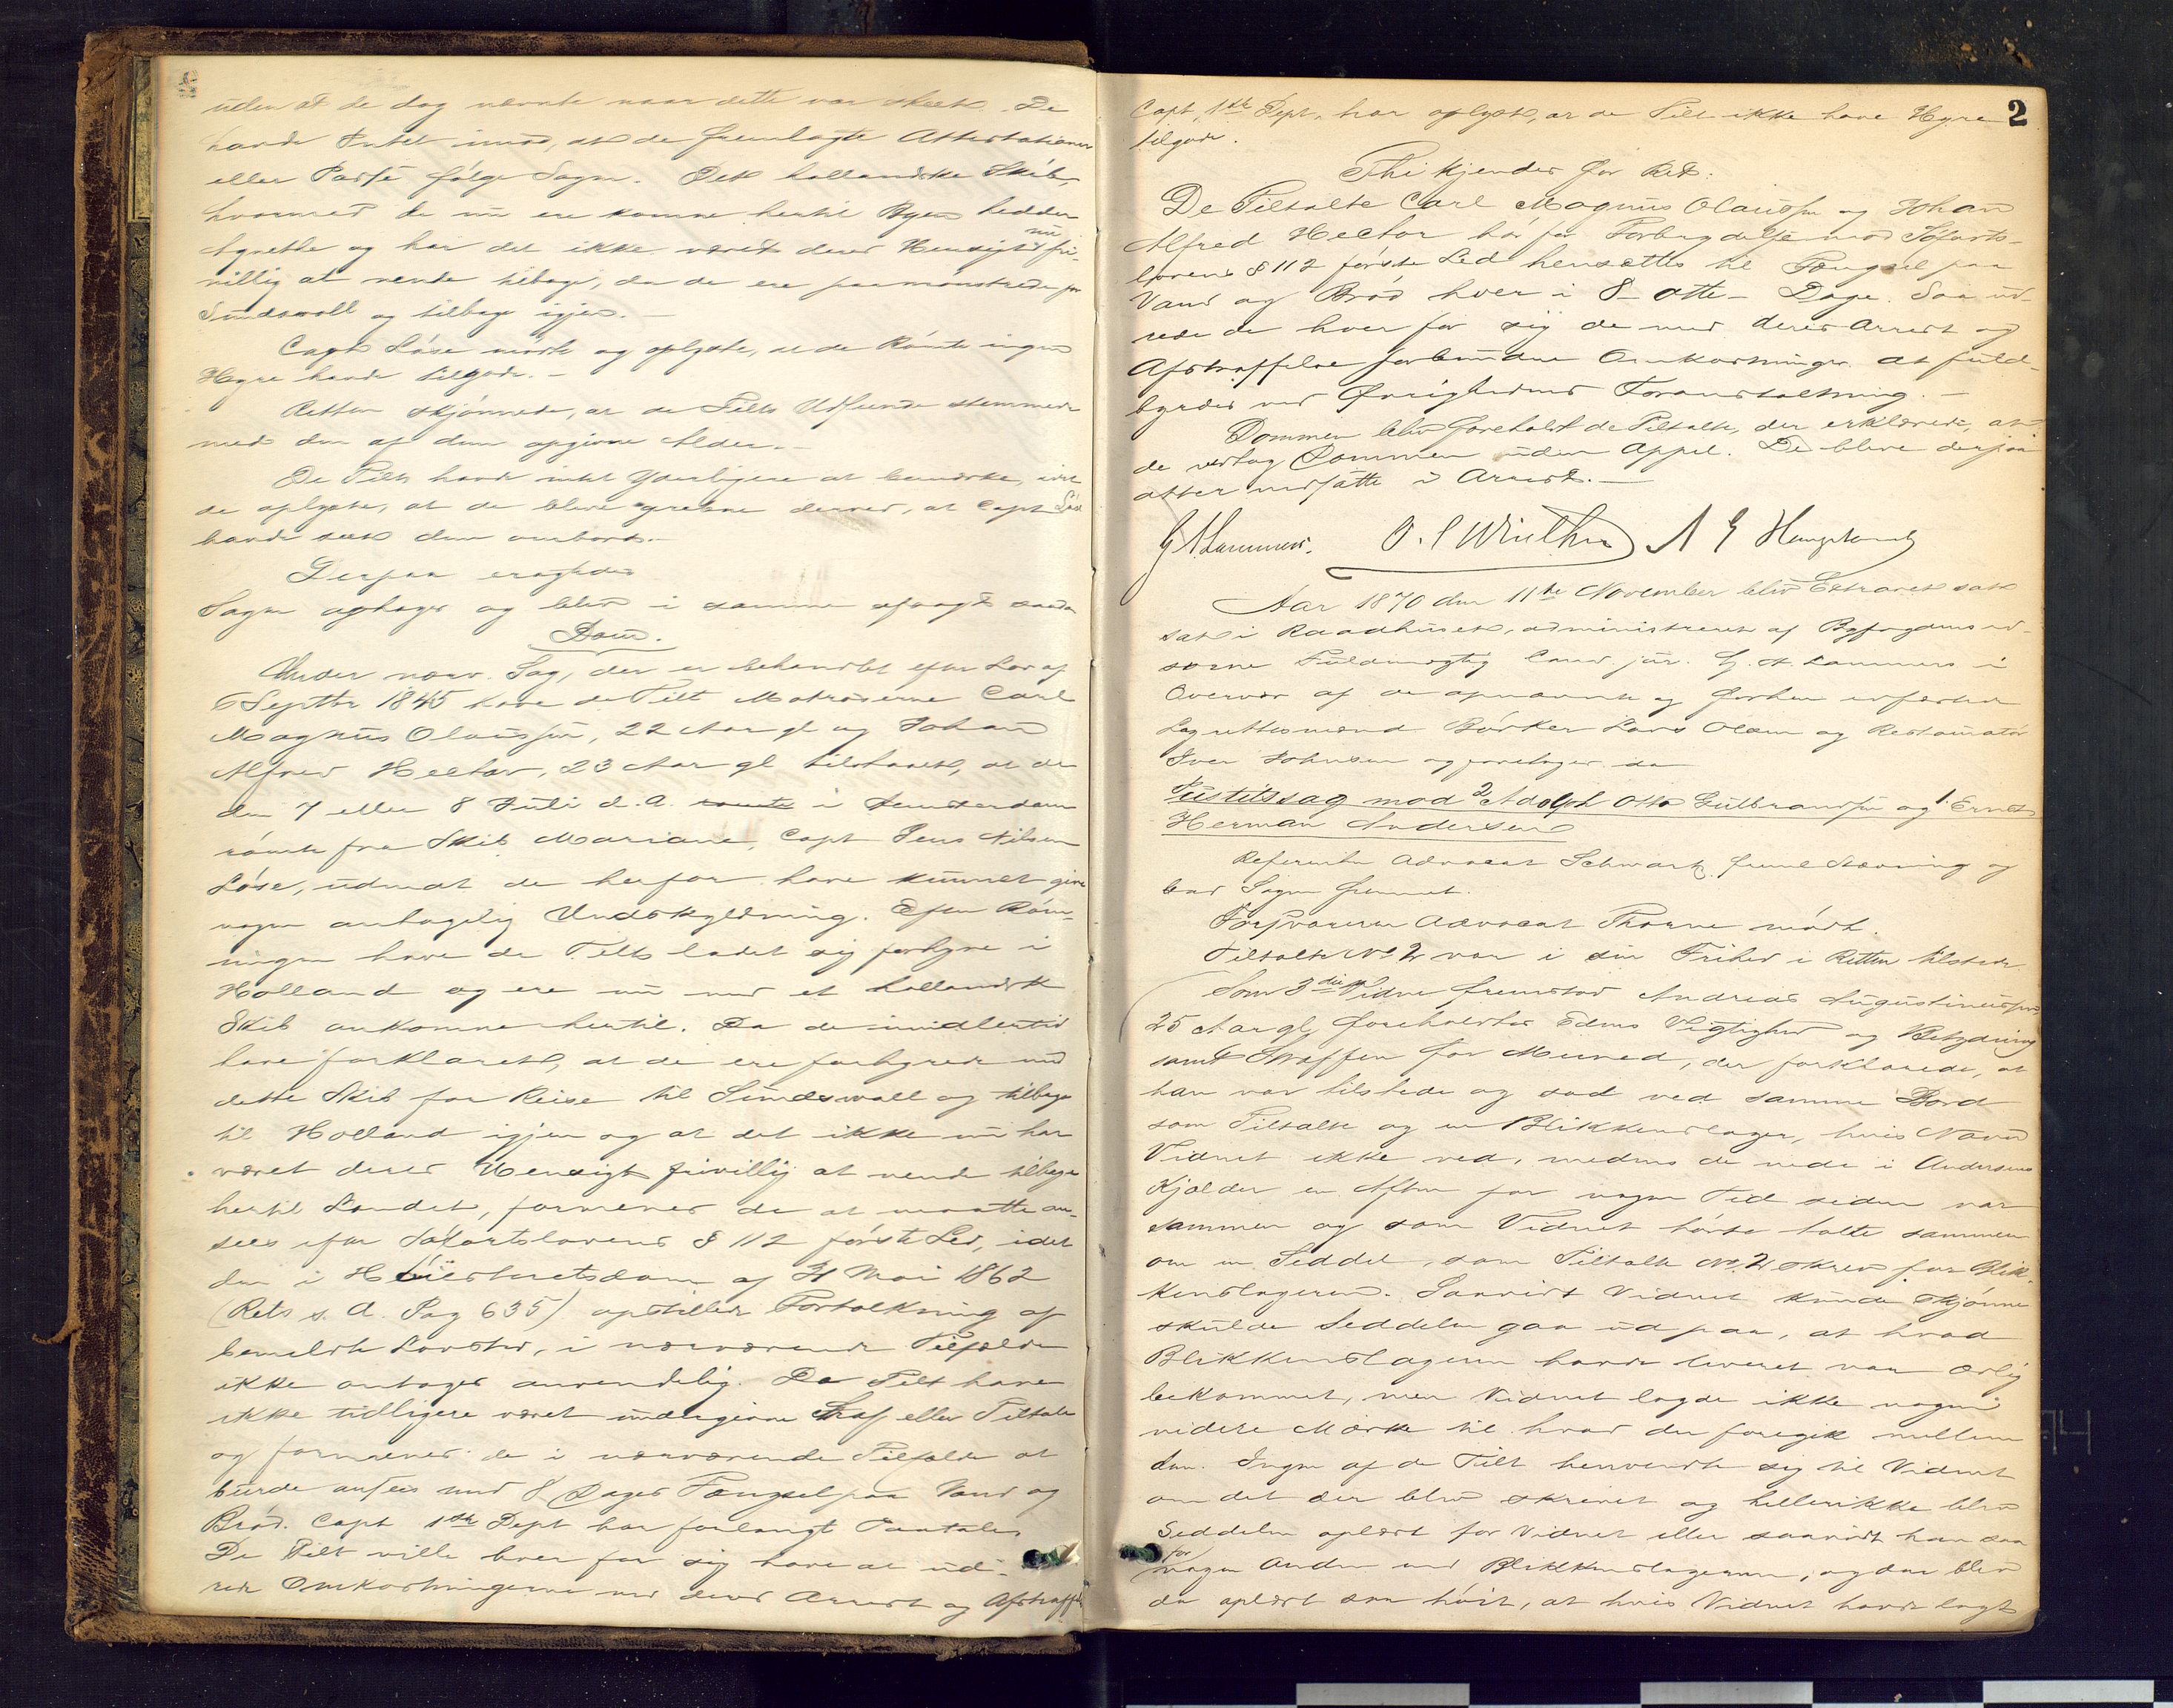 uden at de dog nævnte naar dette var skeet. De
havde Intet imod, at de fremlagte Attestationer
eller Passe følge Sagen. Det hollandske Skib,
hvormed de nu ere komne hertil Byen hedder
og har det ikke været deres Hensigt nu fri-
villig at vende tilbage, da de ere paamønstrede for
Sundswall og tilbage igjen.-
Capt Løse mødte og oplyste, at de Rømte ingen
Hyre havde tilgode.-
Retten skjønnede, at de Tilts Udseende stemmede
med den af dem opgivne Alder.-
De Tilts havde intet Yderligere at bemærke, idet
de oplyste, at de bleve grebne derved, at Capt Løse
havde seet dem ombord.-
Derpaa eragtedes
Sagen optaget og blev i samme afsagt saadan
Dom.
Under nærv. Sag, der er behandlet efter Lov af
6 Septbr 1845 have de Tilt Matroserne Carl
Magnus Olaussen, 22 Aar gl og Johan
Alfred Hector, 23 Aar gl tilstaaet, at de
den 7 eller 8 Juli d. A. i Amsterdam
rømte fra Skib Mariane, Capt Jens Nilsen
Løse, uden at de herfor have kunnet give
nogen antagelig Undskyldning. Efter Røm-
ningen have de Tilts ladet sig forhyre i
Holland og ere nu med et hollandsk
Skib ankomne hertil. Da de imidlertid
have forklaret, at de ere forhyrede med
dette Skib for Reise til Sundswall og tilbage
til Holland igjen og at det ikke nu har
været deres Hensigt frivillig at vende tilbage
hertil Landet, formenes de at maatte an-
sees efter Søfartslovens § 112 første Led, idet
den i Høiesteretsdom af 31 Mai 1862
(Rets s. A. Pag 635) opstillede Fortolkning af
bemeldte Lovsted, i nærværende Tilfælde
ikke antages anvendelig. De Tilt have
ikke tidligere været undergivne Straf eller Tiltale
og formenes de i nærværende Tilfælde at
burde ansees med 8 Dages Fængsel paa Vand og
Brød. Capt 1ste Dept har forlangt Paatale.
De Tilt ville hver for sig have at ud-
rede Omkostningerne med deres Arrest og Afstraffelse
2
Capt, 1ste Dept. har oplyst, at de Tilt ikke have Hyre
tilgode.
Thi kjendes for Ret:
De Tiltalte Carl Magnus Olausson og Johan
Alfred Hector bør for Forbrydelse mod Søfarts-
lovens § 112 første Led hensættes til Fængsel paa
Vand og Brød hver i 8 - otte - Dage. Saa ud-
rede de hver for sig de med deres Arrest og
Afstraffelse forbundne Omkostninger. At fuld-
byrdes ved Øvrighedens Foranstaltning.-
Dommen blev foreholdt de Tiltalte, der erklærede, at
de vedtog Dommen uden Appel. De bleve derpaa
atter nedsatte i Arrest.-
G A Lammers. O. C Winther A G Hengstenb
Aar 1870 den 11te November blev Extraret sat
sat i Raadhuset, administreret af Byfogdens ed-
sorne Fuldmægtig Cand. jur. G. A. Lammers i
Overvær af de opnævnte og forhen edfæstede
Lagrettesmænd Bødker Lars Olsen og Restauratør
Iver Johnsen og foretoges da
Justitssag mod 2 Adolph Otto Gulbrandsen og 1. Ernst
Herman Andersen
Referenten Advocat Schwartz freml Stævning og
bad Sagen fremmet.
Forsvareren Advocat Thorne mødte.
Tiltalte No 2 var i sin Frihed i Retten tilstede.
Som 3die Vidne fremstod Andreas Augustinussen,
25 Aar gl, foreholdtes Edens Vigtighed og Betydning
samt Straffen for Meened, der forklarede, at
han var tilstede og sad ved samme Bord
som Tiltalte og en Blikkenslager, hvis Navn
Vidnet ikke ved, medens de nede i Andersens
Kjælder en Aften for nogen Tid siden var
sammen og som Vidnet hørte talte sammen
om en Seddel, som Tiltalte No. 2 skrev for Blik-
kenslageren. Saavidt Vidnet kunde skjønne
skulde Seddelen gaa ud paa, at hvad
Blikkenslageren havde leveret var ærlig
bekommet, men Vidnet lagde ikke nogen
videre Mærke til hvad der foregik mellem
dem. Ingen af de Tilt henvendte sig til Vidnet
om det der blev skrevet og hellerikke blev
Seddelen oplæst for Vidnet eller saavidt han saa
for nogen Anden end Blikkenslageren, og den blev
da oplæst saa høit, at hvis Vidnet havde lagt